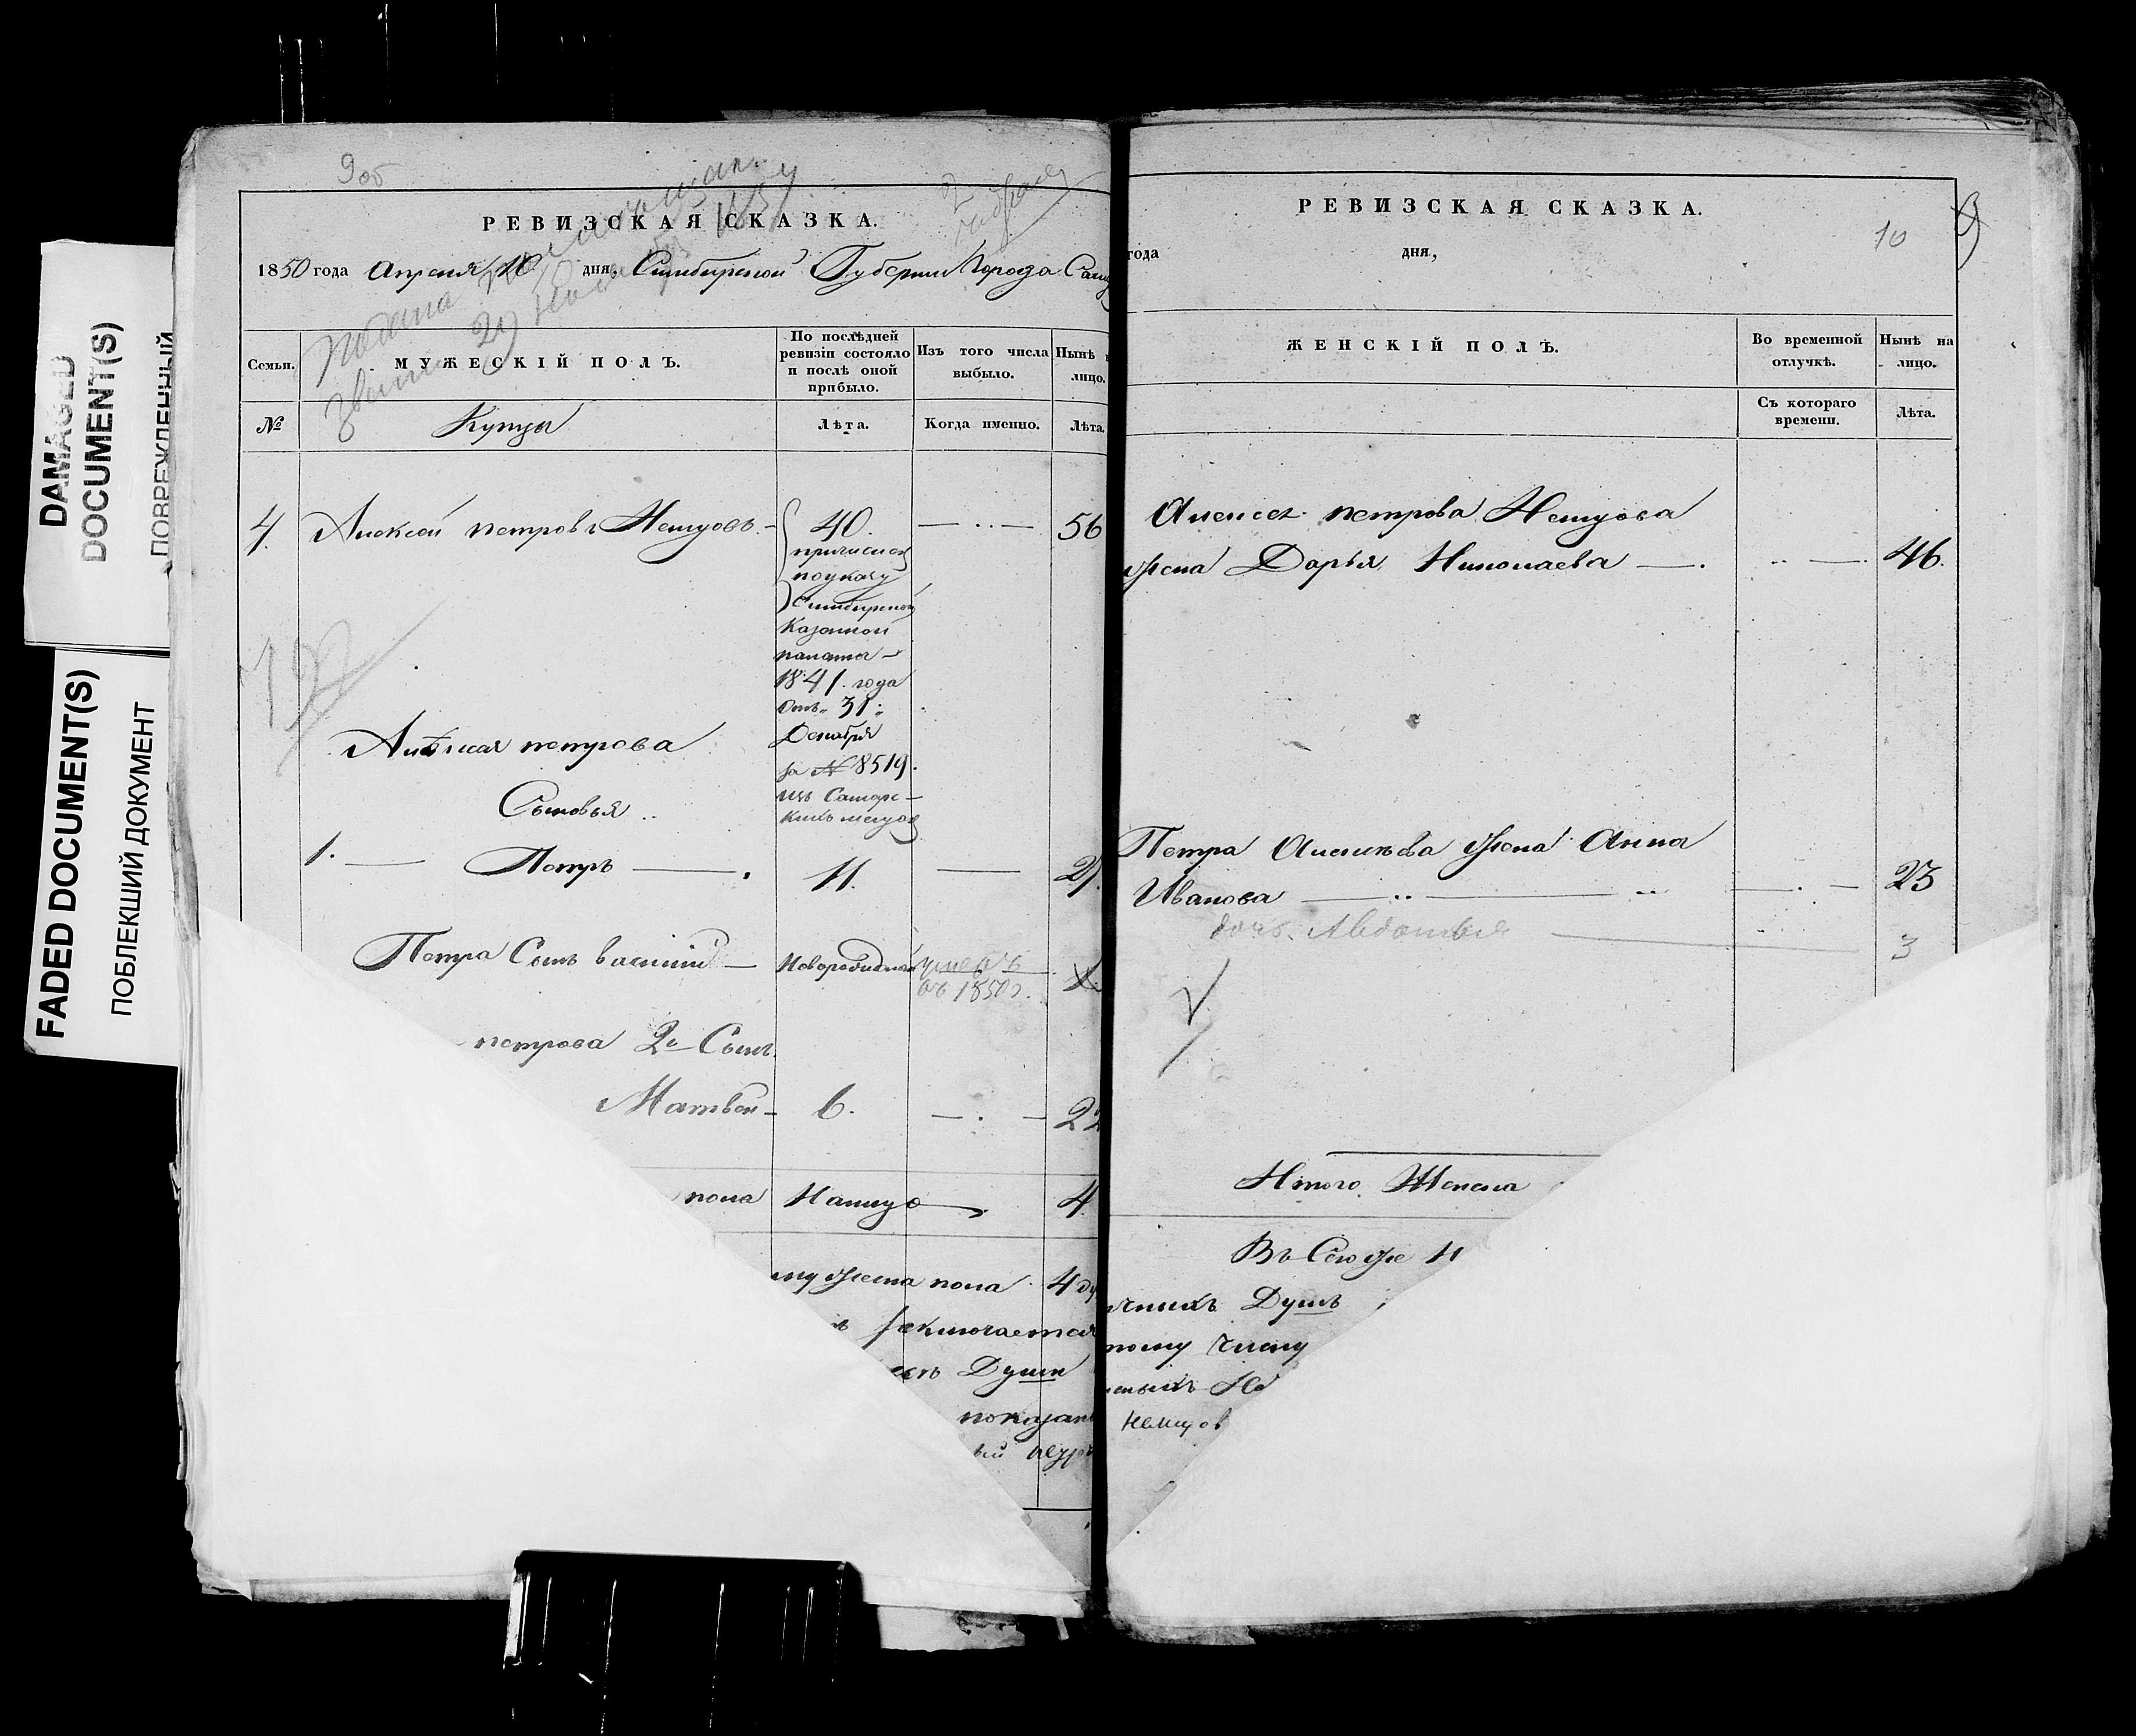 DAMAGED
DOCUMENT(S)
ПОВРЕЖДЕННЫЙ
FADED DOCUMENT(S)
ПОБЛЕКШИЙ ДОКУМЕНТ
9об
РЕВИЗСКАЯ СКАЗКА.
1850 года Апреля 10 дня, Симбирской Губернии Города
Семьи. МУЖЕСКІЙ ПОЛЪ. По послѣдней ревизіи состояло и послѣ оной прибыло. Изъ того числа выбыло. Нынѣ
лицо.
№ Купцы Лѣта. Когда именно. Лѣта.
4. Алексей петровъ Немцовъ 40. 56
причислен
по указу
Симбирской
Казенной
палаты
1841 года
Отъ 31
Декабря
за № 8519.
изъ Самарс-
кихъ мещан
Алексея петрова
Сыновья
1. Петръ 11. 27.
Петра Сынъ василий Новорожденный умеръ
въ 1850 г.
петрова 2й Сынъ
Матвей 6. 22
пола Налицо 4
мужеска пола 4 ду
заключается
Душъ
показан
РЕВИЗСКАЯ СКАЗКА.
10
года дня,
ЖЕНСКІЙ ПОЛЪ. Во временной отлучкѣ. Нынѣ на лицо.
Съ котораго времени. Лѣта.
Алексея петрова Немцова
жена Дарья Николаева 46.
Петра Алексеева жена Анна
Иванова 23
дочь Авдотья 3
Итого Женска
Въ Сей же
Душъ
числу
Немцов